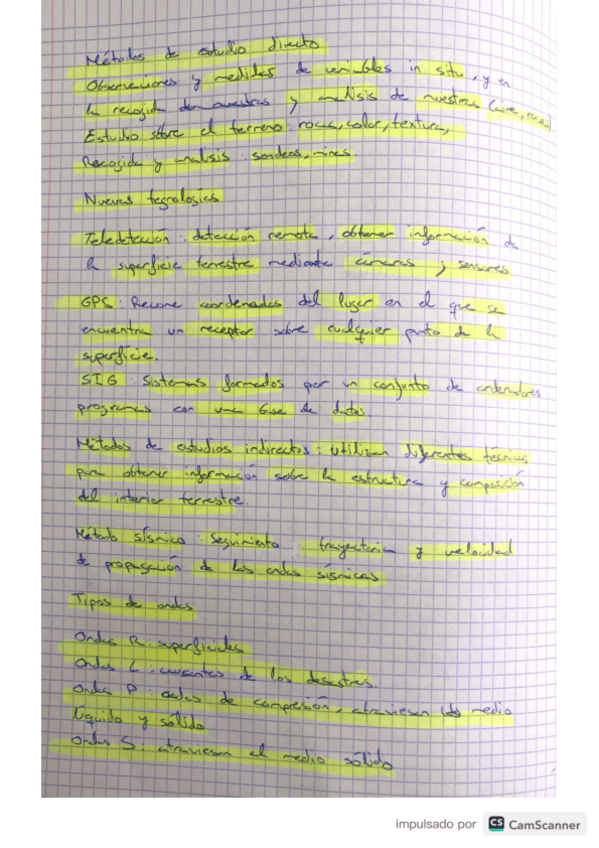 Métodos de estudio directo
Observaciones y medidas de variables in situ, y en
la recogida de muestras y analisis de muestras (aire, rocas)
Estudio sobre el terreno: rocas, color, textura,
Recogida y analisis: sondeos, minas
Nuevas tegnologias
Teledetección: detección remota, obtener información de
la superficie terrestre mediante cámaras y sensores
GPS: Recone coordenadas del lugar en el que se
encuentra un receptor sobre cualquier punto de la
superficie.
SIG: Sistemas formados por un conjunto de ordenadores
programas con una base de datos
Métodos de estudios indirectos: utilizan diferentes técnicas
para obtener información sobre la estructura y composición
del interior terrestre.
Método sísmico: Seguimiento trayectoria y velocidad
de propagación de las ondas sísmicas
Tipos de ondas
Ondas R: superficiales
Ondas L: causantes de los desastres.
Ondas P: ondas de compresión, atraviesan medio
líquido y sólido
Ondas S: atraviesan el medio sólido
impulsado por CS CamScanner